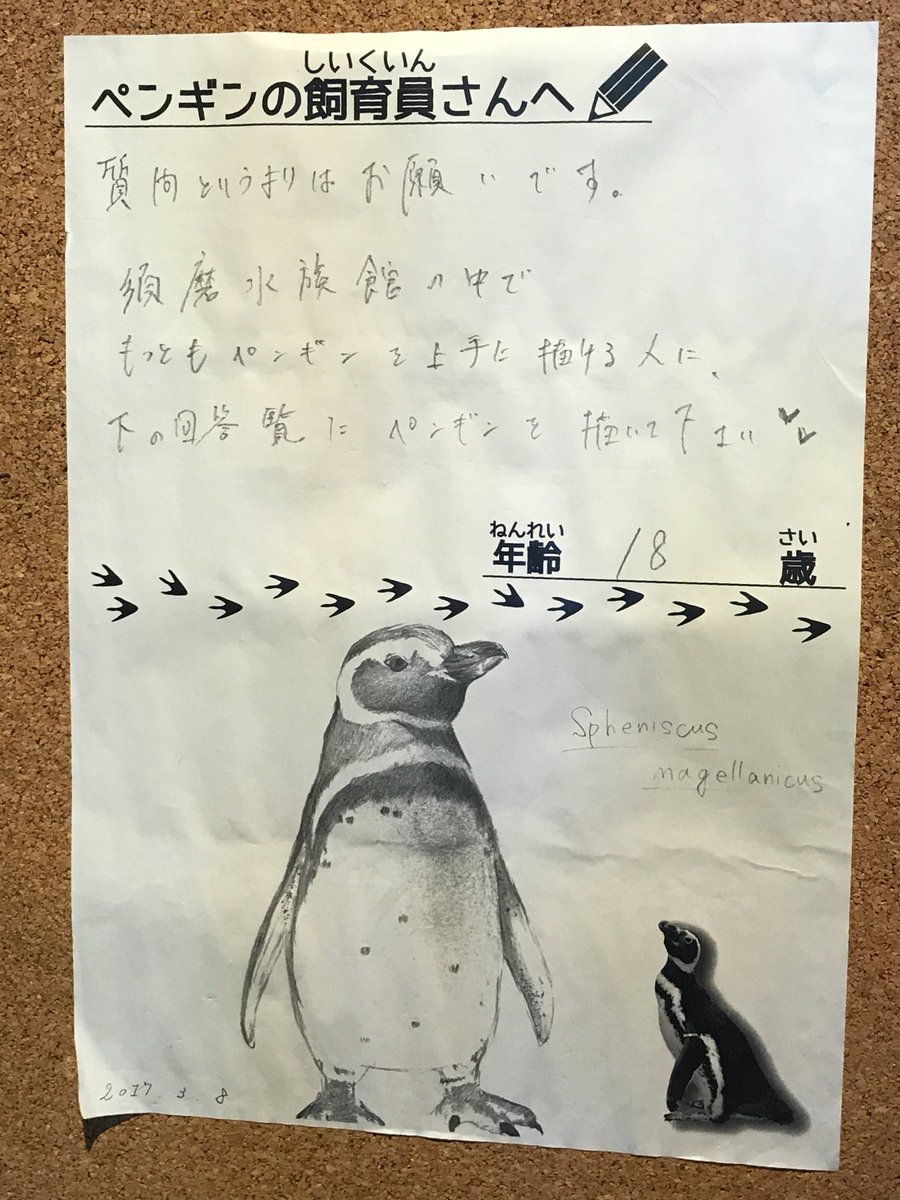 しいくいん
ペンギンの飼育員さんへ
質問というよりはお願いです。
須磨水族館の中で
もっともペンギンを上手に描ける人に、
下の回答覧にペンギンを描いて下さい
ねんれい
年齢 18 歳
さい
Spheniscus
magellanicus
2017. 3. 8